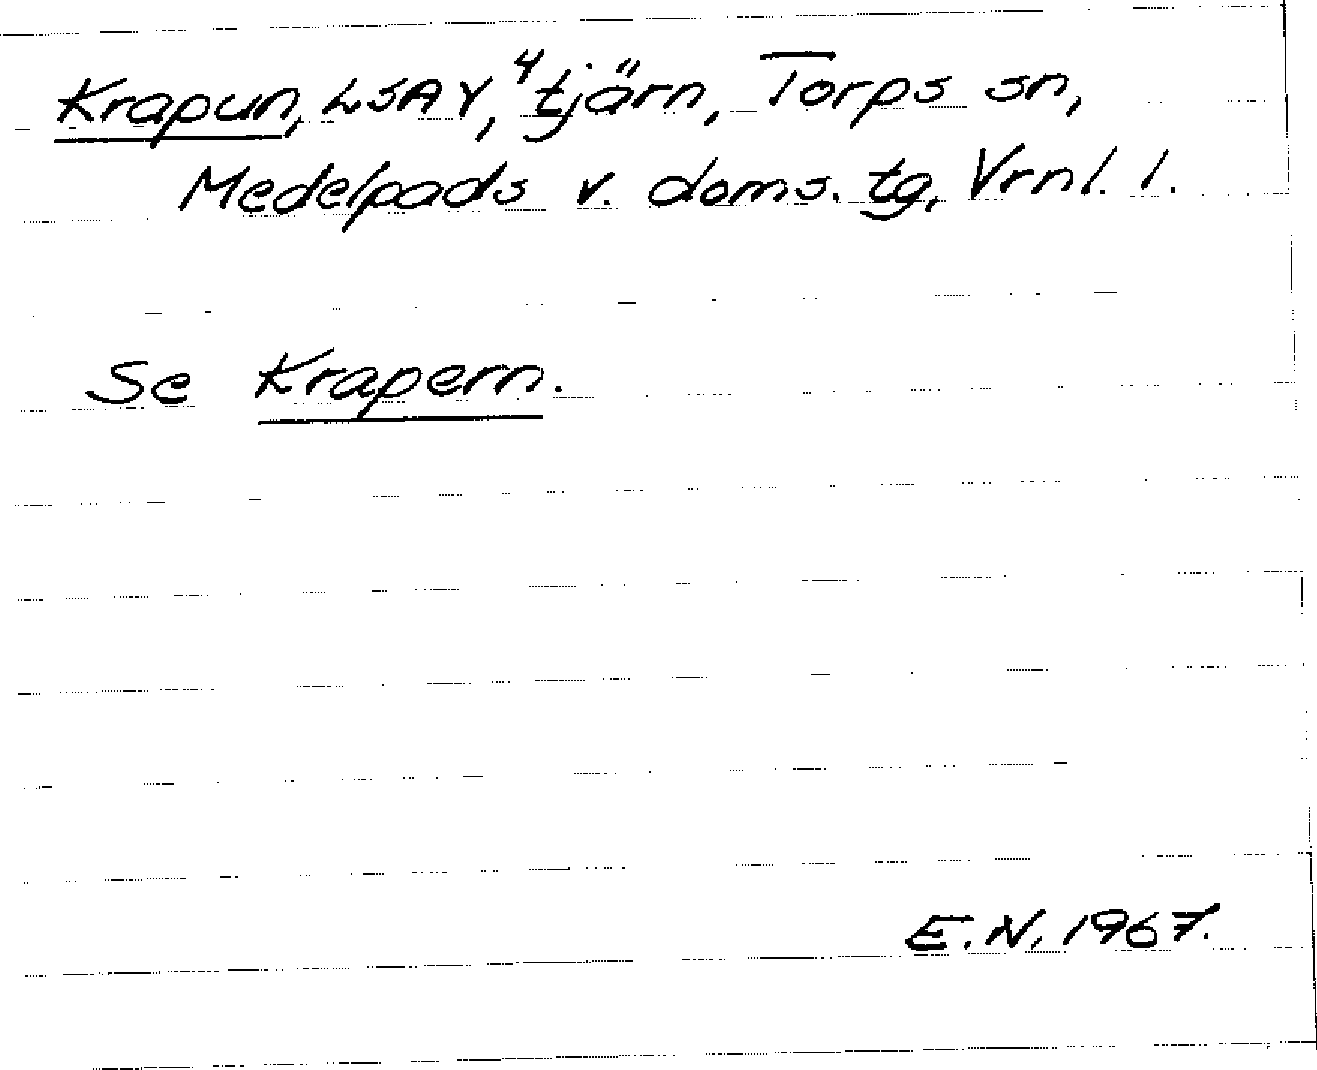 Krapun, LSA Y, 4 tjärn, Torps sn,
Medelpads v. doms. tg, Vrnl. l.
Se Krapern.
E.N. 1967.